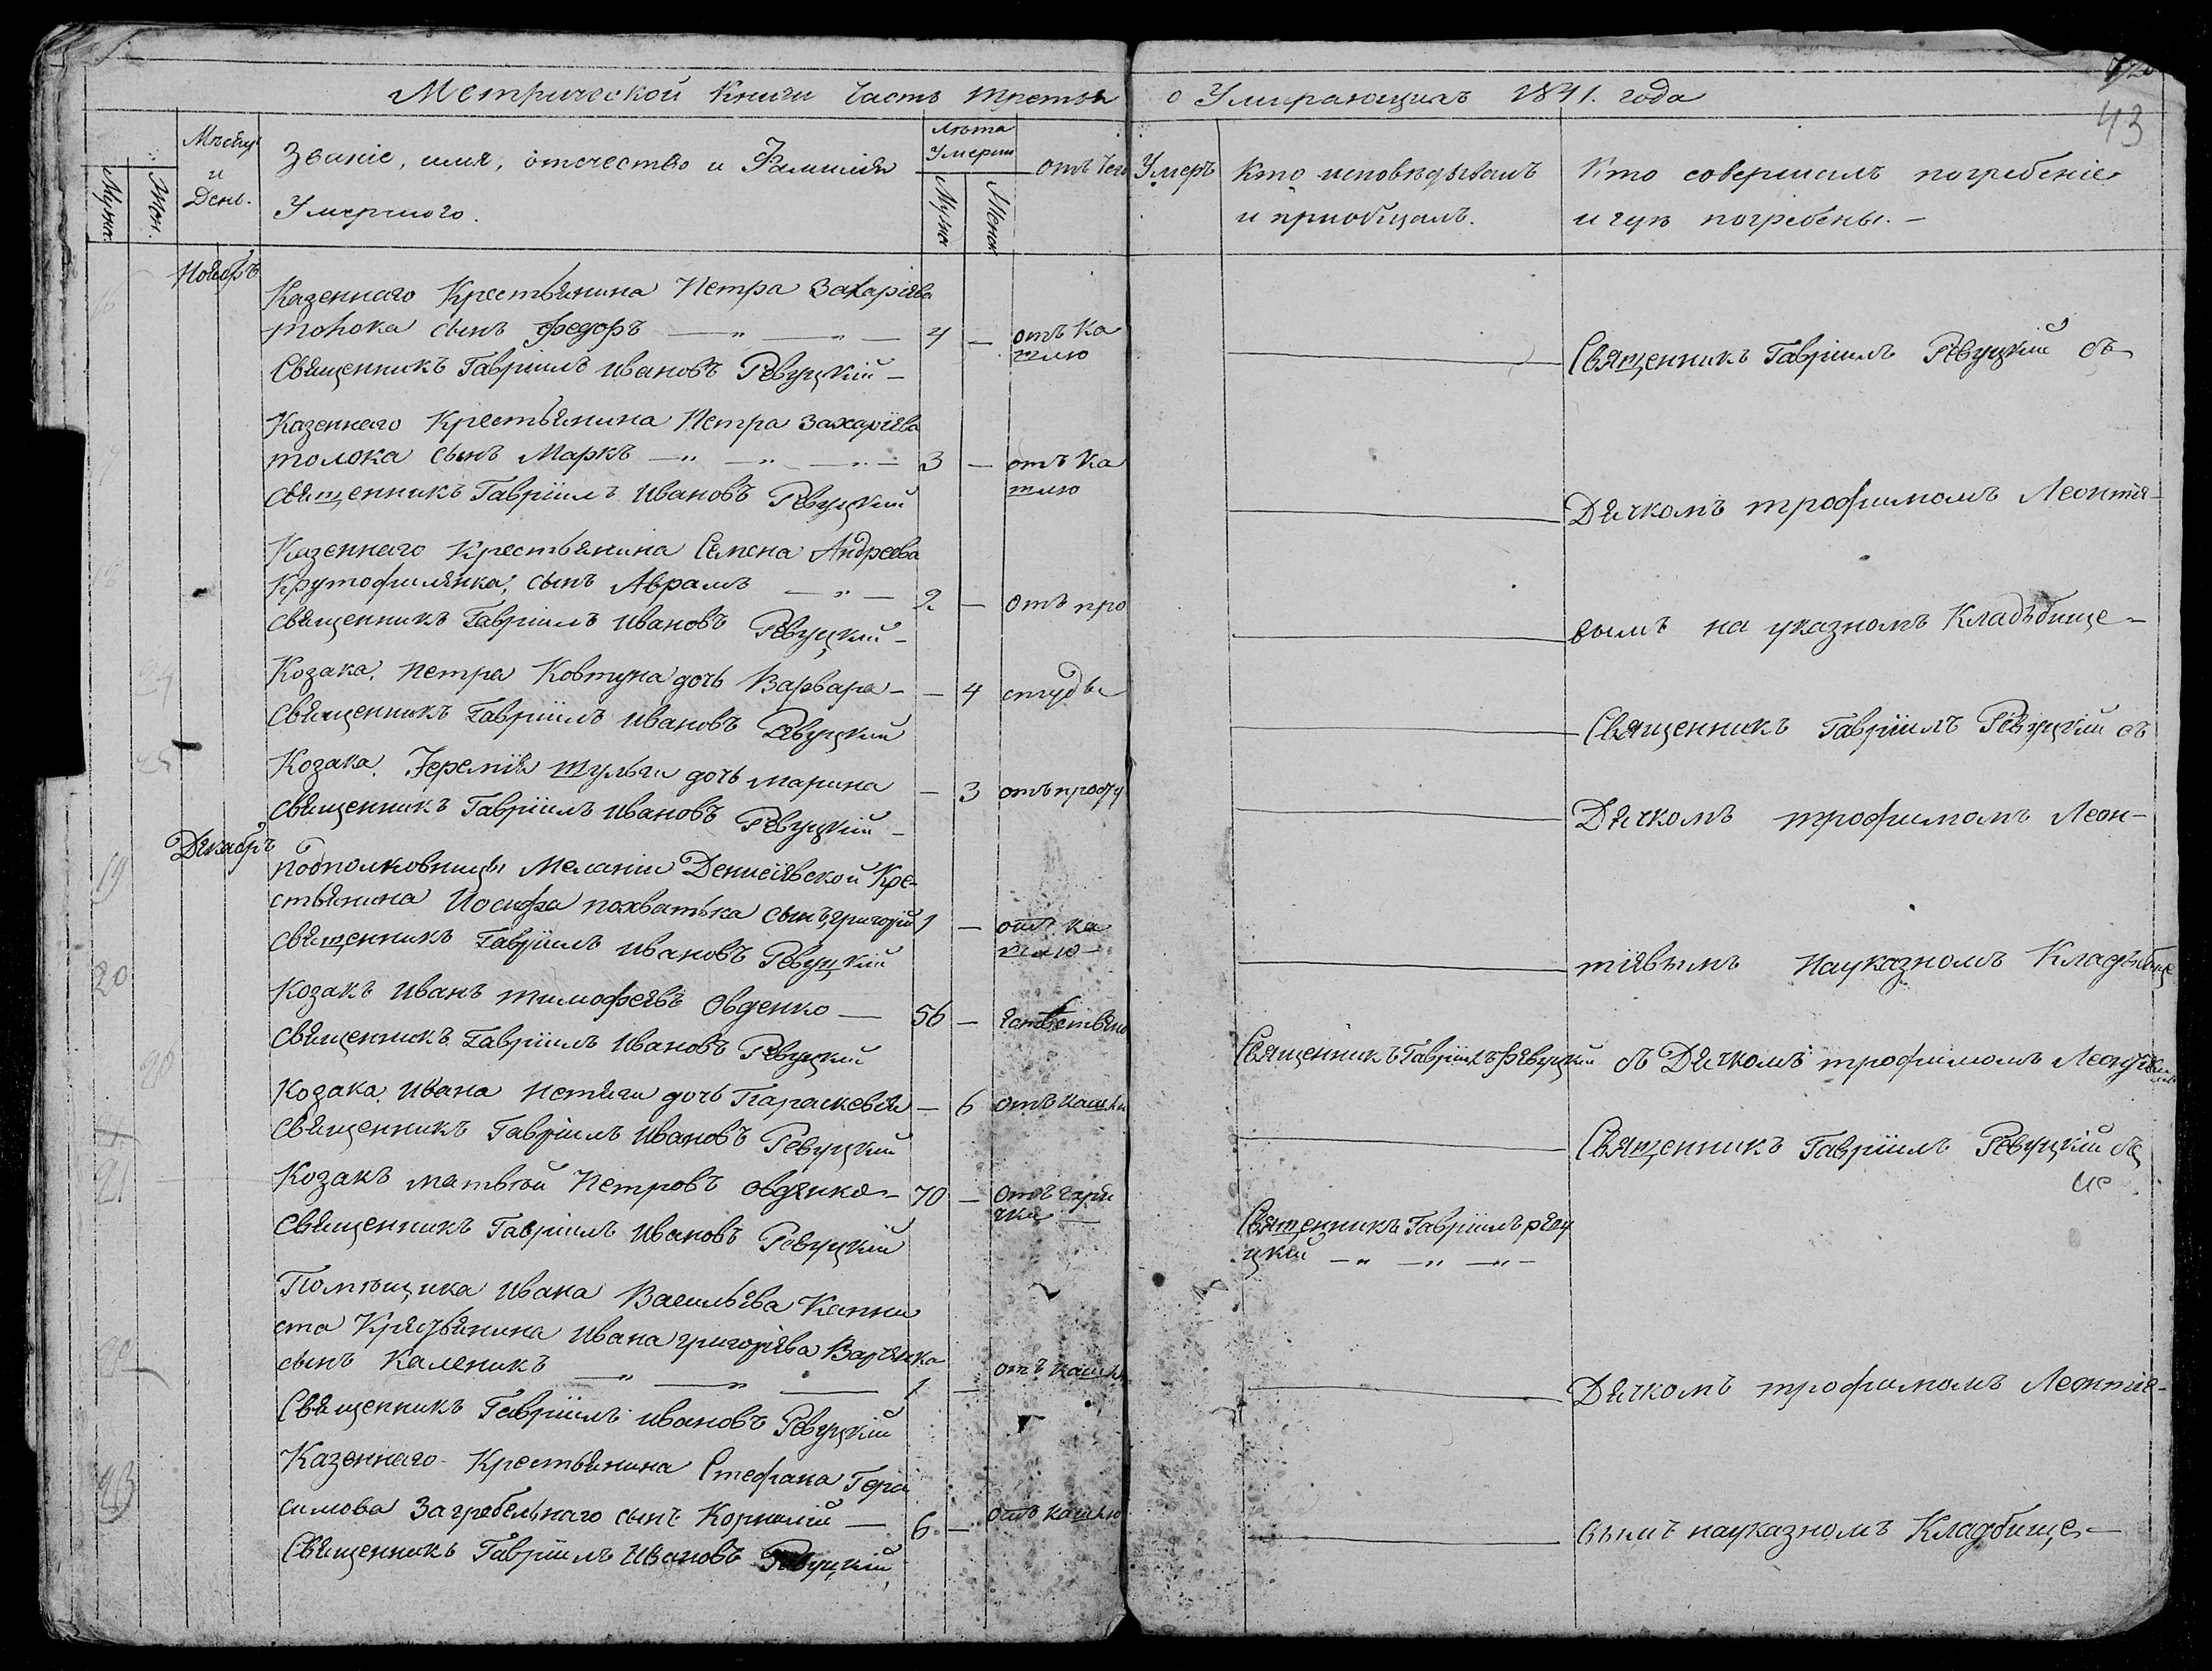 Метрической Книги Часть третья о Умирающихъ 1841. года
43
Мужс.
Жен.
Мѣсяцъ
и
День.
Званіе, имя, отечество и Фамилія
Умершого.
Лѣта
Умерши
Мужс
Женск
отъ Чего Умеръ
Кто исповѣдывалъ
и приобщалъ.
Кто совершалъ погребеніе
и гдѣ погребены. –
Ноябрь
Казеннаго Крестьянина Петра Захаріева
толока сынъ Федоръ — „ — „ — 4 — отъ Ка
шлю
Священникъ Гавріилъ Ивановъ Ревуцкій –
Священникъ Гавріилъ Ревуцкій съ
Казеннаго Крестьянина Петра Захаріева
толока сынъ Маркъ — „ — „ — „ — 3 — отъ Ка
шлю
священникъ Гавріилъ Ивановъ Ревуцкий
Дячкомъ трофимомъ Леонтіе-
Казеннаго Крестьянина Семена Андреева
Крутофилянка, сынъ Аврамъ — „ — 2 — отъ про
священникъ Гавріилъ Ивановъ Ревуцкий –
вымъ на указномъ Кладъбище –
24
Козака Петра Ковтуна дочь Варвара – — 4 студы
Священникъ Гавріилъ Ивановъ Ревуцкий
Священникъ Гавріилъ Ревуцкій съ
25
Козака Іереміи Шульги дочь Марина — 3 отъ просту
священникъ Гавріилъ Ивановъ Ревуцкій –
Дячкомъ трофимомъ Леон-
Декабрь
19
подполковницы Меланіи Денисіевской Кре-
стьянина Иосифа похватька сынъ григорий 1 — отъ ка
шлю –
священникъ Гавріилъ Ивановъ Ревуцкій
тіевымъ на указномъ Кладъбище
20
Козакъ Иванъ тимофѣевъ Овденко — 56 — Естественно
священникъ Гавріилъ Ивановъ Ревуцкий
Священникъ Гавріилъ Ревуцкий съ Дячкомъ трофимомъ
26
Козака Ивана нетяги дочь Параскевія — 6 отъ кашлю
священникъ Гавріилъ Ивановъ Ревуцкий
Священникъ Гавріилъ Ревуцкій съ
21
Козакъ матвѣй Петровъ овденко – 70 — отъ гаря
чки —
священникъ Гавріилъ Ивановъ Ревуцкий
Священникъ Гавріилъ реву
цкій — „ — „ — „ –
Помѣщика Ивана Васильѣва Капни
ста Крестьянина Ивана григоріева
сынъ Каленикъ — „ — „ — 1 — отъ кашлю
Священникъ Гавріилъ ивановъ Ревуцкій
Дячкомъ трофимомъ Леонтіе-
23
Казеннаго Крестьянина Стефана Гера
симова Загребельнаго сынъ Корнилій — 6 — отъ кашлю
Священникъ Гавріилъ Ивановъ Ревуцкій
вымъ на указномъ Кладбище –